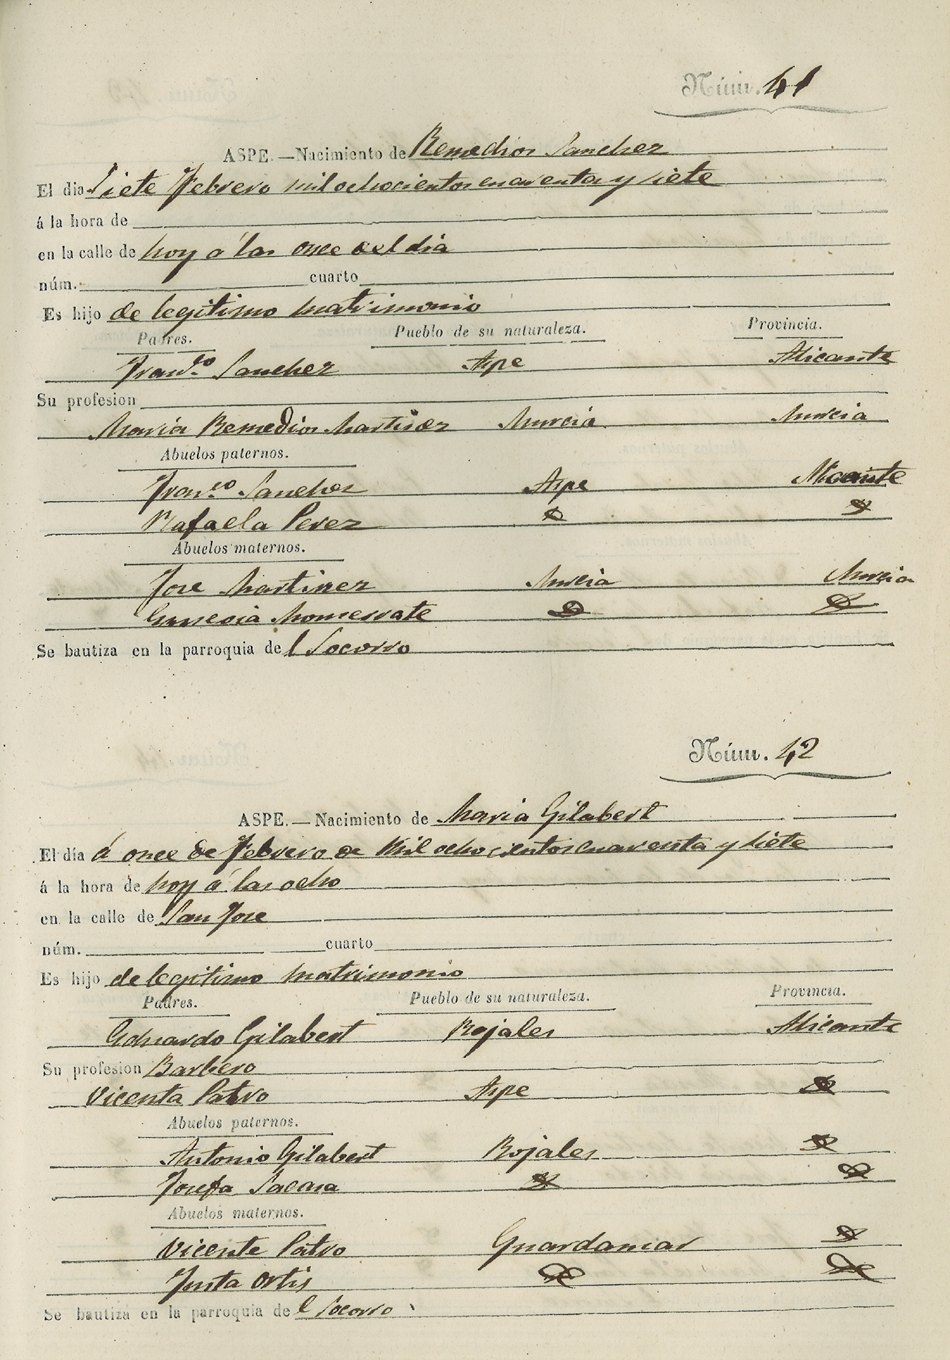 Núm. 41
ASPE.—Nacimiento de Remedios Sanchez
El dia Siete Febrero mil ochocientos cuarenta y siete
á la hora de
en la calle de hoy á las once del dia
núm. cuarto
Es hijo de legitimo matrimonio
Padres. Pueblo de su naturaleza. Provincia.
Franco. Sanchez Aspe Alicante
Su profesion
Maria Remedios Martinez Murcia Murcia
Abuelos paternos.
Franco. Sanchez Aspe Alicante
Rafaela Perez
Abuelos maternos.
Jose Martinez Murcia Murcia
Monserrate
Se bautiza en la parroquia del Socorro
Núm. 42
ASPE.—Nacimiento de Maria Gilabert
El día á once de Febrero de Mil ochocientos cuarenta y siete
á la hora de hoy á las ocho
en la calle de San Jose
núm. cuarto
Es hijo de legitimo matrimonio
Padres. Pueblo de su naturaleza. Provincia.
Eduardo Gilabert Rojales Alicante
Su profesion Barbero
Vicenta Pastro Aspe
Abuelos paternos.
Antonio Gilabert Rojales
Josefa
Abuelos maternos.
Vicente Guardamar
Justa Ortis
Se bautiza en la parroquia del Socorro